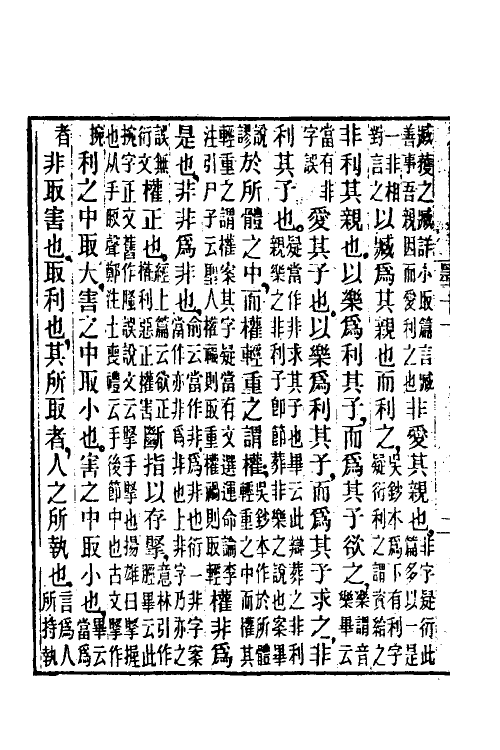 臧獲之臧詳小取篇言臧善事吾親因而愛利之也非愛其親也非字疑衍此篇多以一是
一非相對言之以臧爲其親也而利之吳鈔本爲下有利字疑衍利之謂資給之
非利其親也以樂爲利其子而爲其子欲之樂謂音樂畢云
當有非字誤愛其子也以樂爲利其子而爲其子求之非
利其子也疑當作非求其子也畢云此辯葬之非利親樂之非利子卽節葬非樂之說也案畢
說謬於所體之中而權輕重之謂權吳鈔本作於所體輕重之中而權其
輕重之謂權案其字疑當有文選運命論李注引尸子云聖人權福則取重權禍則取輕權非爲
是也非非爲非俞云當作亦非爲非也衍一非字案當作亦非爲非也上非字乃亦之
誤無衍文權正也經上篇云欲正權利惡正權害斷指以存掔意林引作脛畢云此
掔字正文舊作誤說文云掔手掔也揚雄曰掔握也从手臤聲鄭注士喪禮云手後節中也古文掔作
捥利之中取大害之中取小也害之中取小也畢云當爲
者非取害也取利也其所取者人之所執也言爲人所持執